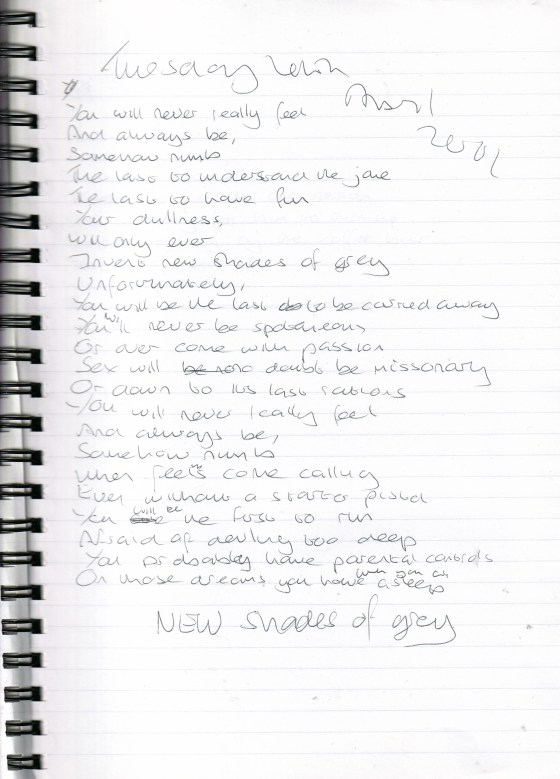 Tuesday
April
You will never really feel
And always be,
Somehow numb
The last to understand the joke
The last to have fun
Your dullness,
will only ever
Invent new shades of grey
Unfortunately,
You will be the last to be carried away
You will never be spontaneous
Or over come with passion
Sex will no doubt be missionary
Or down to its last rations
You will never really feel
And always be,
Somehow numb
When feelings come calling
Even without a starter pistol
You will be the first to run
Afraid of delving too deep
You probably have parental controls
On those dreams you have when you are asleep
NEW shades of grey